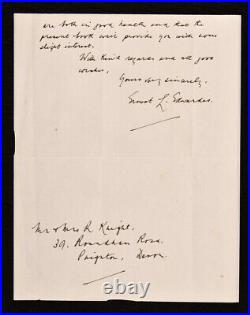 are both in good health and that the
present book will provide you with some
slight interest.
With kind regards and all good
wishes,
Yours very sincerely,
Ernest L. Edwardes
Mr & Mrs R Knight.
39, Roundham Road.
Paignton, Devon.